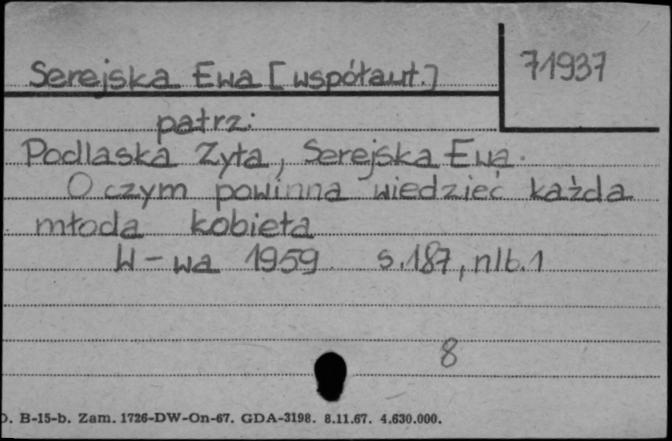 Serejska Ewa [współaut.]
71937
patrz:
Podlaska Zyta, Serejska Ewa.
O czym powinna wiedzieć każda
młoda kobieta
W-wa 1959 s.187, nlb.1
8
O. B-15-b. Zam. 1726-DW-On-67. GDA-3198. 8.11.67. 4.630.000.